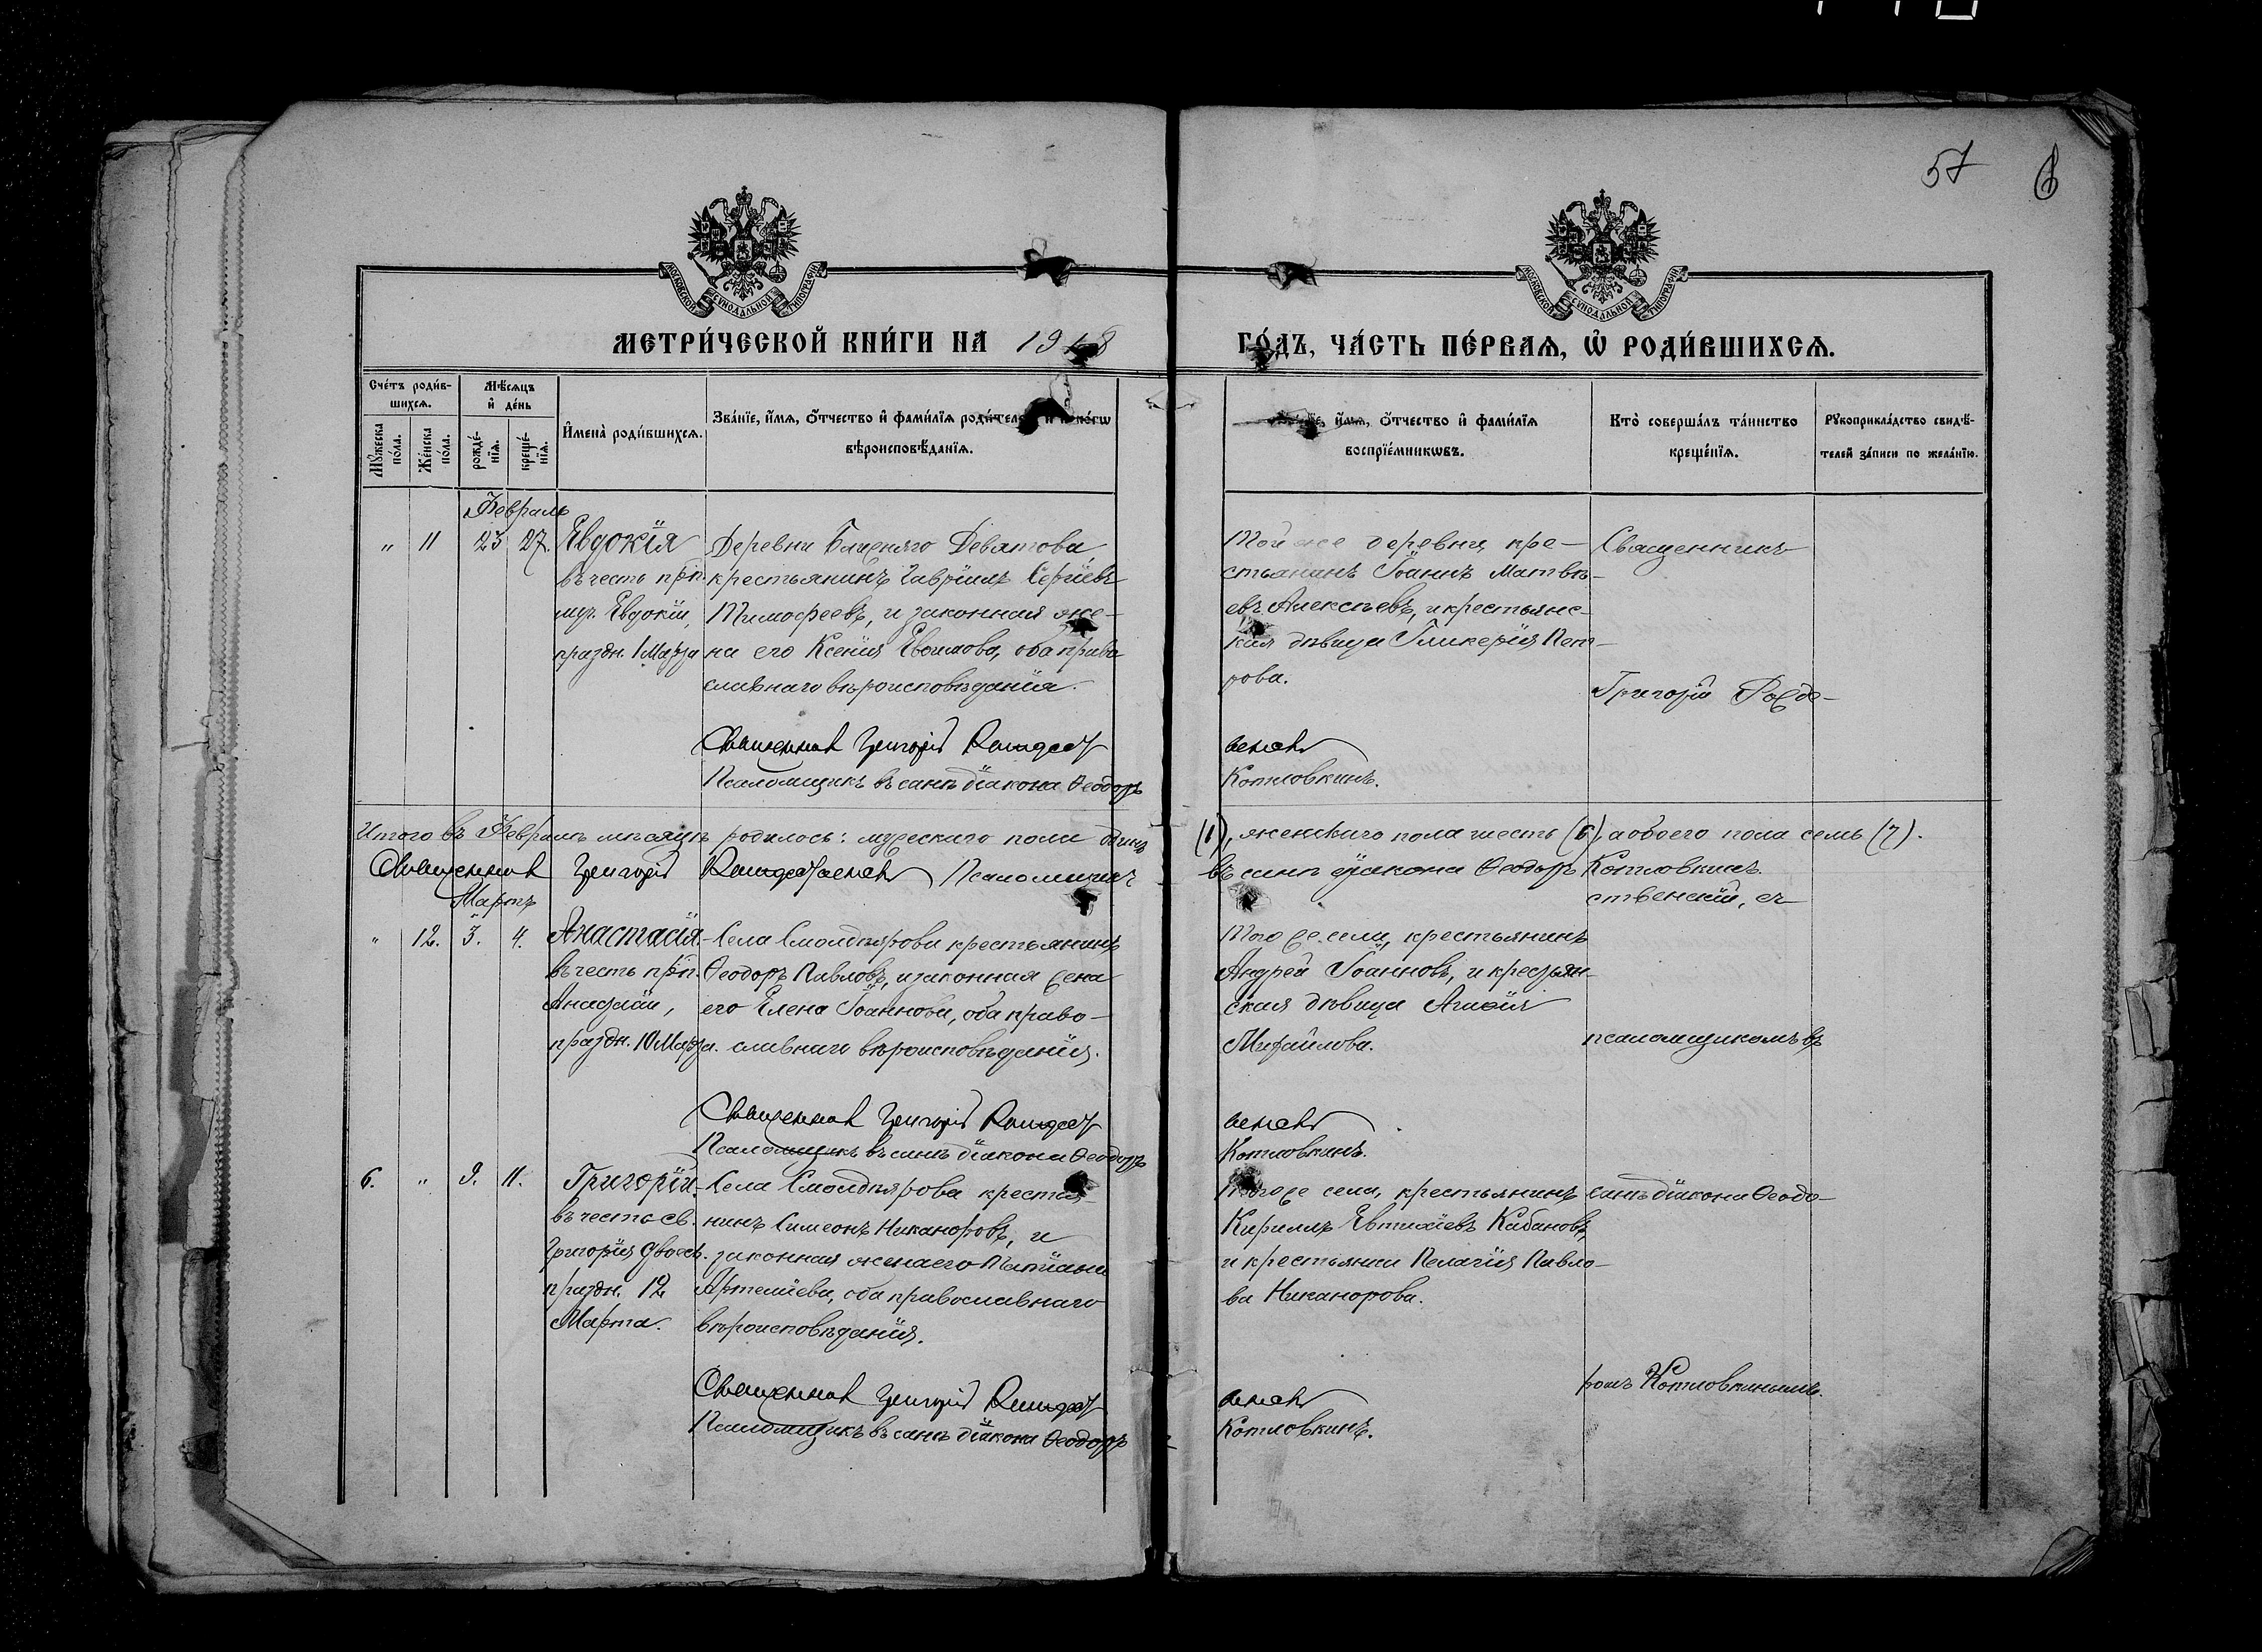 57 6
МОСКОВСКОЙ СУНОДАЛЬНОЙ ТИПОГРАФІИ
МОСКОВСКОЙ СУНОДАЛЬНОЙ ТИПОГРАФІИ
МЕТРИ́ЧЕСКОЙ КНИ́ГИ НА 1918 ГО́ДЪ, ЧА́СТЬ ПЕ́РВАѦ, Ѡ РОДИ́ВШИХСѦ.
Сче́тъ роди́в-
шихсѧ.
Мꙋ́жеска по́ла.
Же́нска по́ла.
Мѣ́сѧцъ
и де́нь
рожде́-
нїѧ.
креще́-
нїѧ.
Имена̀ роди́вшихсѧ.
Зва́нїе, и́мѧ, ѻ́тчество и фами́лїѧ роди́телей и како́гѡ
вѣроисповѣ́данїѧ.
и́мѧ, ѻ́тчество и фами́лїѧ
воспрїе́мникѡвъ.
Кто̀ соверша́лъ та́инство
креще́нїѧ.
Рꙋкоприкла́дство свидѣ́-
телей за́писи по жела́нїю.
Февраль
" 11 23 27. Евдокія
въ честь прп.
муч. Евдокіи,
праздн. 1 Марта
Деревни Ближняго Девятова
крестьянинъ Гавріилъ Сергіевъ
Тимофеевъ, и законная же-
на его Ксенія Евѳимова, оба право
славнаго вѣроисповѣданія.
Священник Григорій Рождест
Псаломщикъ въ санѣ діакона Ѳеодоръ
Той же деревни кре-
стьянинъ Іоаннъ Матвѣ-
евъ Алексѣевъ, и крестьянс-
кая дѣвица Гликерія Пет-
рова.
венскій
Котловкинъ.
Священникъ
Григорій Рожде-
Итого въ Февралѣ мѣсяцѣ родилось: мужескаго пола одинъ (1), женскаго пола шесть (6), а обоего пола семь (7).
Священник Григорій Рождественскій Псаломщикъ въ санѣ діакона Ѳеодоръ Котловкинъ.
Мартъ
" 12. 3. 4. Анастасія
въ честь прп.
Анастасіи,
праздн. 10 Марта.
Села Смолдѣярова крестьянинъ
Ѳеодоръ Павловъ, и законная жена
его Елена Іоаннова, оба право-
славнаго вѣроисповѣданія.
Священник Григорій Рождест
Псаломщикъ въ санѣ діакона Ѳеодоръ
Того же села, крестьянинъ
Андрей Іоанновъ, и крестьян-
ская дѣвица Агаѳія
Михайлова.
венскій
Котловкинъ.
ственскій, съ
псаломщикомъ въ
6. " 9. 11. Григорій
въ честь св.
Григорія Двоесл.
праздн. 12
Марта.
Села Смолдѣярова крестья-
нинъ Симеонъ Никаноровъ, и
законная жена его Татіана
Артеміева, оба православнаго
вѣроисповѣданія.
Священник Григорій Рождест
Псаломщикъ въ санѣ діакона Ѳеодоръ
Того же села, крестьянинъ
Кириллъ Евтихіевъ Кабановъ,
и крестьянка Пелагія Павло-
ва Никанорова.
венскій
Котловкинъ.
санѣ діакона Ѳеодо-
ромъ Котловкинымъ.